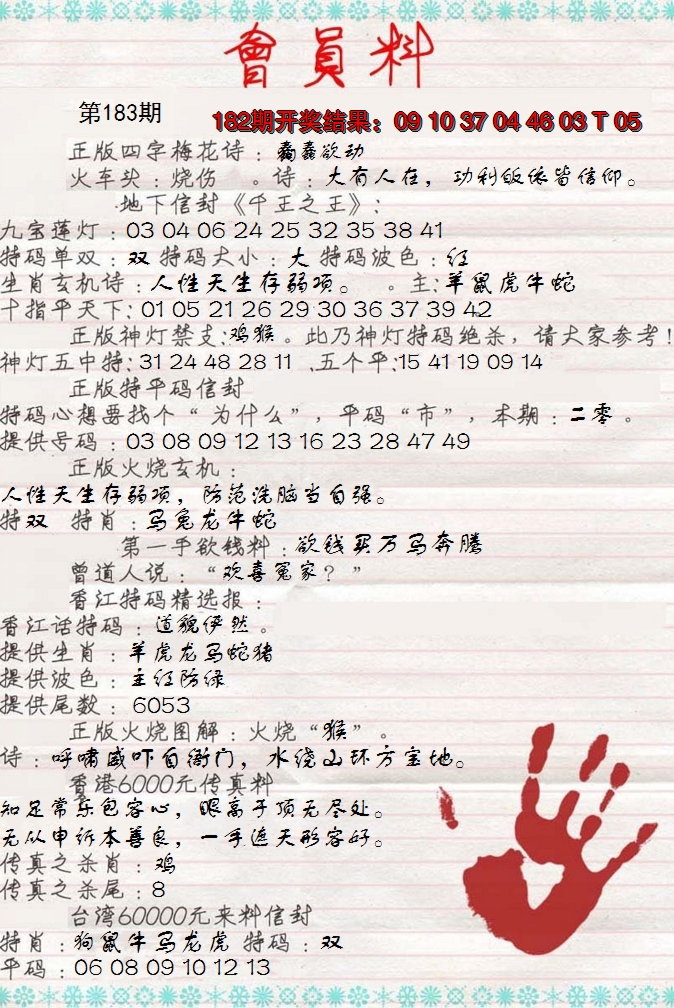 會員料
第183期
182期开奖结果：09 10 37 04 46 03 T 05
正版四字梅花诗：蠢蠢欲动
火车头：烧伤 。诗：大有人在，功利皈依皆信仰。
·地下信封《千王之王》：
九宝莲灯：03 04 06 24 25 32 35 38 41
特码单双：双 特码大小：大 特码波色：红
生肖玄机诗：人性天生存弱项。 。主：羊鼠虎牛蛇
十指平天下：01 05 21 26 29 30 36 37 39 42
正版神灯禁支：鸡猴。此乃神灯特码绝杀，请大家参考！
神灯五中特：31 24 48 28 11 、五个平：15 41 19 09 14
正版特平码信封
特码心想要找个“为什么”，平码“市”，本期：二零。
提供号码：03 08 09 12 13 16 23 28 47 49
正版火烧玄机：
人性天生存弱项，防范洗脑当自强。
特双 特肖：马兔龙牛蛇
第一手欲钱料：欲钱买万马奔腾
曾道人说：“欢喜冤家？”
香江特码精选报：
香江话特码：道貌俨然。
提供生肖：羊虎龙马蛇猪
提供波色：主红防绿
提供尾数：6053
正版火烧图解：火烧“猴”。
诗：呼啸威吓自衙门，水绕山环方宝地。
香港6000元传真料
知足常乐包容心，眼高于顶无尽处。
无从申诉本善良，一手遮天形容好。
传真之杀肖：鸡
传真之杀尾：8
台湾60000元来料信封
特肖：狗鼠牛马龙虎 特码：双
平码：06 08 09 10 12 13